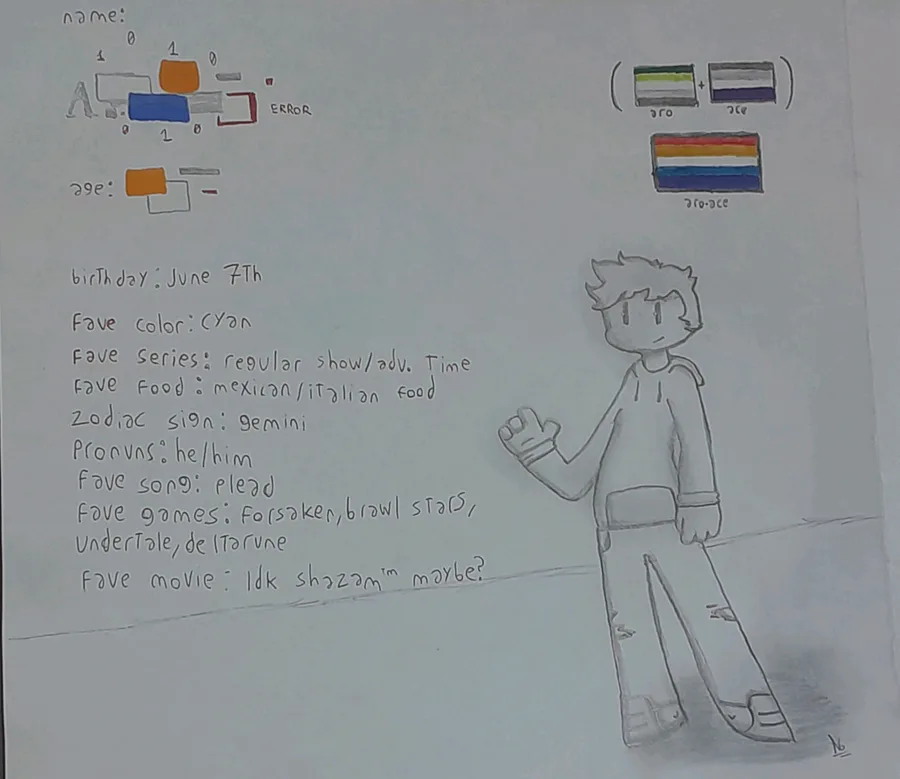 name:
0
1 1 0
A.
ERROR
0 1 0
age:
( + )
aro ace
aro-ace
birthday: June 7th
Fave color: cyan
Fave series: regular show/adv. Time
Fave Food: mexican/italian food
Zodiac sign: gemini
Pronuns: he/him
Fave song: plead
Fave games: Forsaken, brawl stars,
undertale, deltarune
Fave movie: Idk shazam™ maybe?